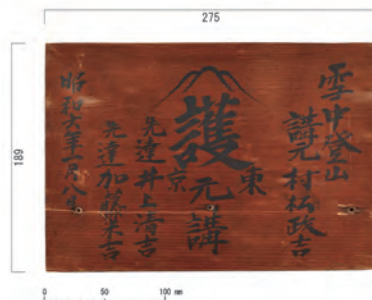 275
189
雪中登山
講元 村松政吉
護
東京元講
先達 井上清吉
先達 加藤栄吉
昭和六年一月八日
0 50 100 mm